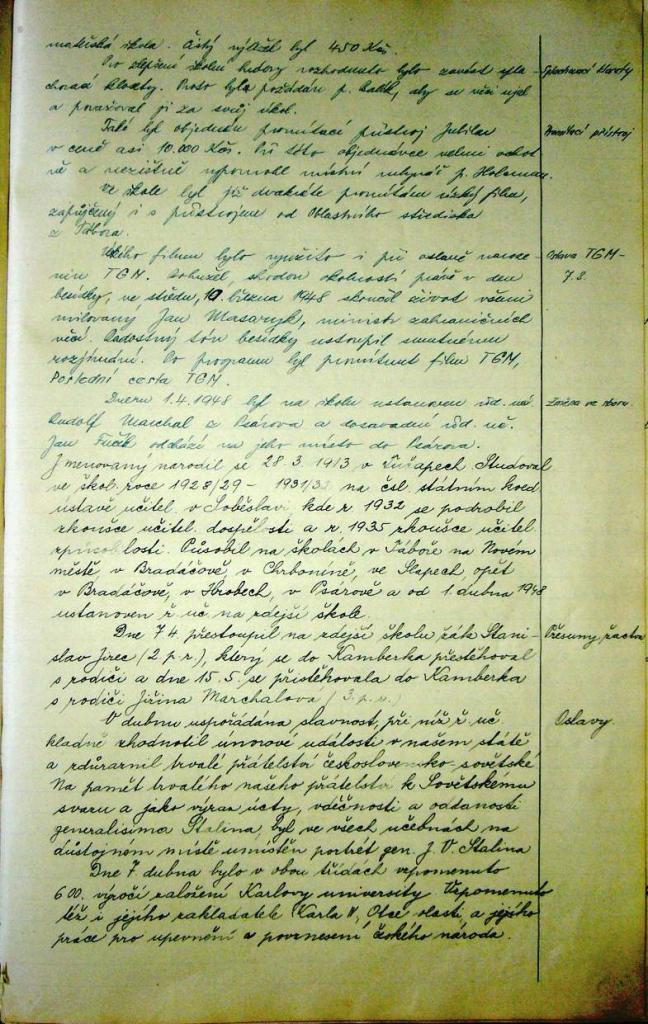 mateřská škola. Čistý výtěžek byl 450 Kčs.
Pro zlepšení školní budovy rozhodnuto bylo zavést spla-
chovací klozety. Proto byl požádán p. aby se věci ujal
a považoval ji za svůj úkol.
Také byl objednán promítací přístroj Jubilar
v ceně asi 10.000 Kčs. Při této objednávce velmi ochot
ně a nezištně vypomohl místní p. Holoman.
Ve škole byl již dvakráte promítán úzký film,
zapůjčený i s přístrojem od Oblastního střediska
z Tábora.
Úzkého filmu bylo využito i při oslavě naroze-
nin TGM. Bohužel, shodou okolností právě v den
besídky, ve středu, 10. března 1948 skončil život všemi
milovaný Jan Masaryk, ministr zahraničních
věcí. Radostný tón besídky ustoupil smutnému
rozjímání. Po programu byl promítnut film TGM,
Poslední cesta TGM.
Dnem 1.4.1948 byl na školu ustanoven říd. uč.
Rudolf Marchal z Psárova a dosavadní říd. uč.
Jan Fučík odchází na jeho místo do Psárova.
Jmenovaný narodil se 28.3.1913 v Tučapech. Studoval
ve škol. roce 1928/29 - 1931/32 na čsl. státním koed
ústavě učitel. v Soběslavi, kde r. 1932 se podrobil
zkoušce učitel. dospělosti a r. 1935 zkoušce učitel.
způsoblosti. Působil na školách v Táboře na Novém
městě, v Bradáčově, v Chrbonině, ve Slapech opět
v Bradáčově, v Hrobech, v Psárově a od 1. dubna 1948
ustanoven ř. uč. na zdejší škole.
Dne 7.4. přestoupil na zdejší školu žák Stani-
slav Jirec (2 p.r.), který se do Kamberka přestěhoval
s rodiči a dne 15.5. se přistěhovala do Kamberka
s rodiči Jiřina Marchalova (3. p.r.)
V dubnu uspořádána slavnost, při níž ř. uč.
kladně zhodnotil únorové události v našem státě
a zdůraznil trvalé přátelství československo-sovětské.
Na paměť trvalého našeho přátelství k Sovětskému
svazu a jako výraz úcty, vděčnosti a oddanosti
generalisima Stalina, byl ve všech učebnách na
důstojném místě umístěn portrét gen. J. V. Stalina
Dne 7. dubna bylo v obou třídách vzpomenuto
600. výročí založení Karlovy university. Vzpomenuto
též i jejího zakladatele Karla IV., Otce vlasti, a jejího
práce pro upevnění a povznesení českého národa.
Splachovací klozety
Promítací přístroj
Oslava TGM -
7.3.
Změna ve sboru.
Přesuny žactva
Oslavy.